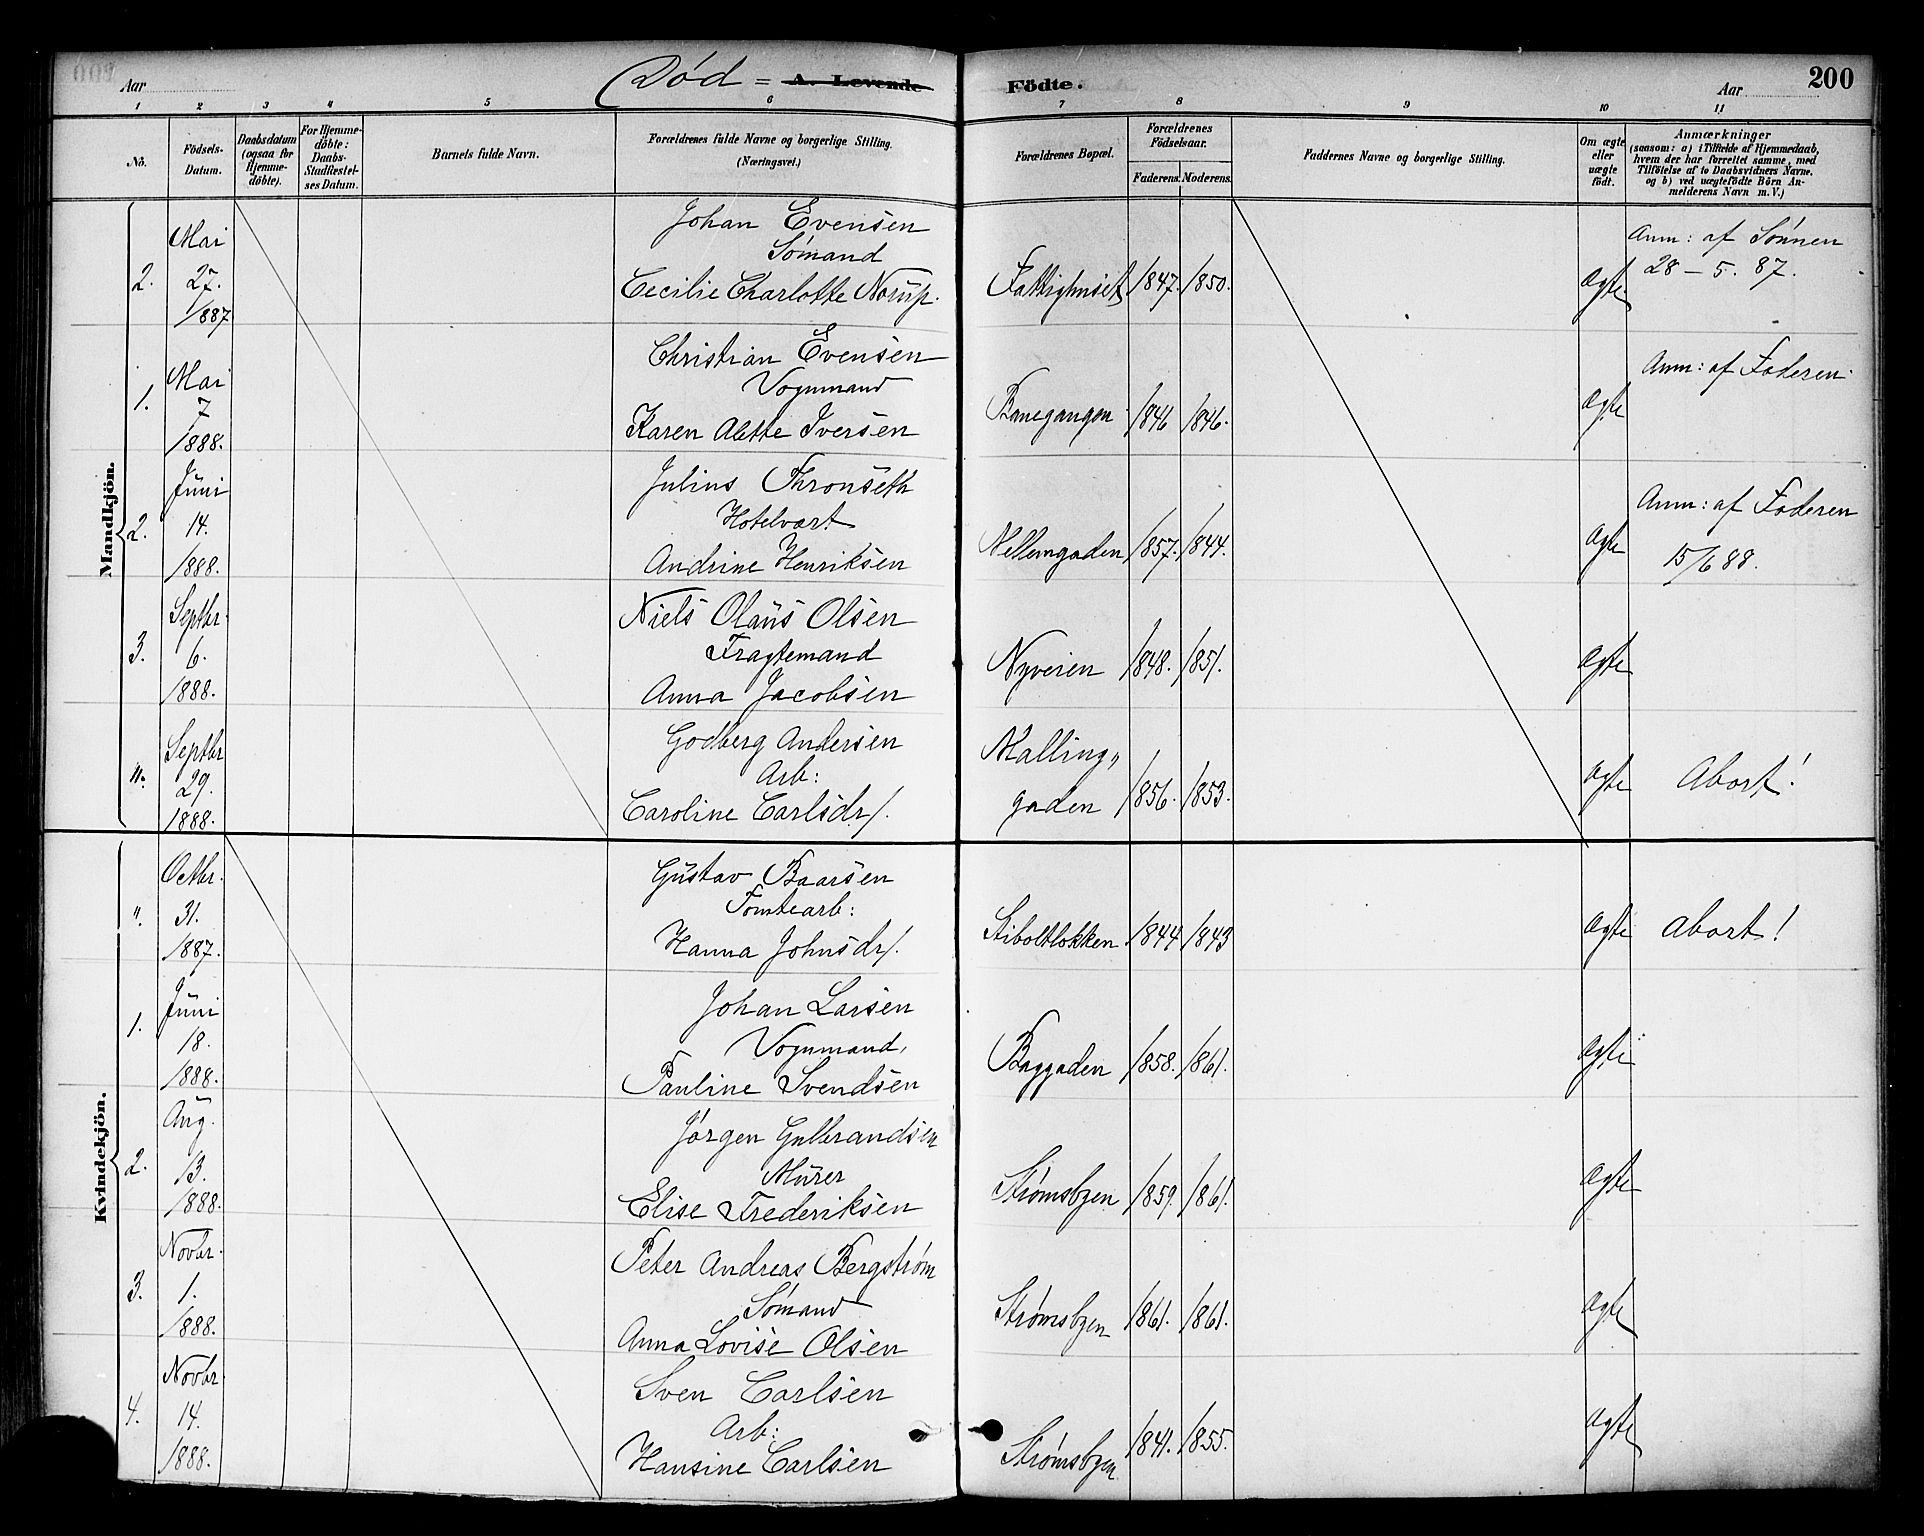 Aar
Død = A. Levende Födte.
Aar
200
1 2 3 4 5 6 7 8 9 10 11
No.
Födsels-Datum.
Daabsdatum (ogsaa for Hjemme-döbte).
For Hjemme-döbte: Daabs-Stadfæstel-ses Datum.
Barnets fulde Navn.
Forældrenes fulde Navne og borgerlige Stilling.
(Næringsvei.)
Forældrenes Bopæl.
Forældrenes Födselsaar.
Faderens. Moderens.
Faddernes Navne og borgerlige Stilling.
Om ægte eller uægte födt.
Anmærkninger
(saasom: a) i Tilfælde af Hjemmedaab,
hvem der har forrettet samme, med
Tilföielse af to Daabsvidners Navne.
og b) ved uægtefödte Börn An-
melderens Navn m. V.)
Mandkjön.
2. Mai 27. 1887
Johan Evensen
Sømand
Cecilie Charlotte Norup.
Fattighuset 1847. 1850. Ægte
Anm: af Sønnen
28-5.87.
1. Mai 7 1888.
Christian Evensen
Vognmand
Karen Alette Iversen
Banegangen 1846 1846. Ægte
Anm: af Faderen
2. Juni 14. 1888.
Julius Thronseth
Hotelvært
Andrine Henriksen
Mellemgaden 1857. 1844. Ægte
Anm: af Faderen
15/6 88.
3. Septbr. 6. 1888.
Niels Olaus Olsen
Fragtemand
Anna Jacobsen
Nyveien 1848. 1851. Ægte
". Septbr 29. 1888.
Godberg Andersen
Arb:
Caroline Carlsdr/.
Malling,,
gaden 1856. 1853. Ægte
Abort!
Kvindekjön.
". Octbr. 31. 1887.
Gustav Baarsen
Tomtearb:
Hanna Johnsdr/.
Stiboltløkken 1844 1843 Ægte
Abort!
1. Juni 18. 1888.
Johan Larsen
Vognmand,
Pauline Svendsen
Baggaden 1858. 1861. Ægte
2. Aug. 13. 1888.
Jørgen Gulbrandsen
Murer
Elise Frederiksen
Strømsbyen 1859. 1861. Ægte
3. Novbr. 1. 1888.
Peter Andreas Bergstrøm
Sømand
Anna Lovise Olsen
Strømsbyen 1861. 1861. Ægte
4. Novbr. 14. 1888.
Sven Carlsen
Arb:
Hansine Carlsen
Strømsbyen 1841. 1855. Ægte